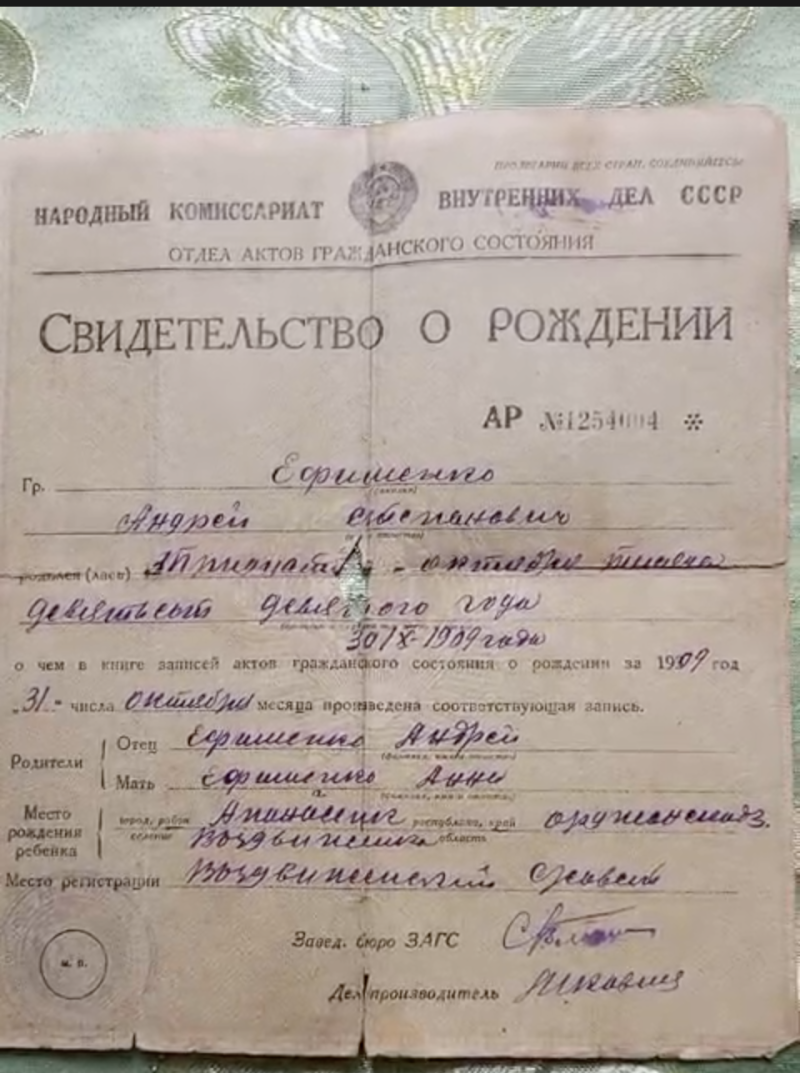 ПРОЛЕТАРИИ ВСЕХ СТРАН, СОЕДИНЯЙТЕСЬ
НАРОДНЫЙ КОМИССАРИАТ ВНУТРЕННИХ ДЕЛ СССР
ОТДЕЛ АКТОВ ГРАЖДАНСКОГО СОСТОЯНИЯ
СВИДЕТЕЛЬСТВО О РОЖДЕНИИ
АР №1254004 *
Гр. Ефименко
(фамилия)
Андрей Степанович
родился (лась) октября тысяча
девятьсот девятого года
30/X-1909 года
о чем в книге записей актов гражданского состояния о рождении за 1909 год
„31" числа октября месяца произведена соответствующая запись.
Родители Отец Ефименко Андрей
(фамилия, имя и отчество)
Мать Ефименко Анна
(фамилия, имя и отчество)
Место рождения ребенка город, район селение республика, край область
Место регистрации Воздвиженский с/совет
Завед. бюро ЗАГС
М. П.
Делопроизводитель